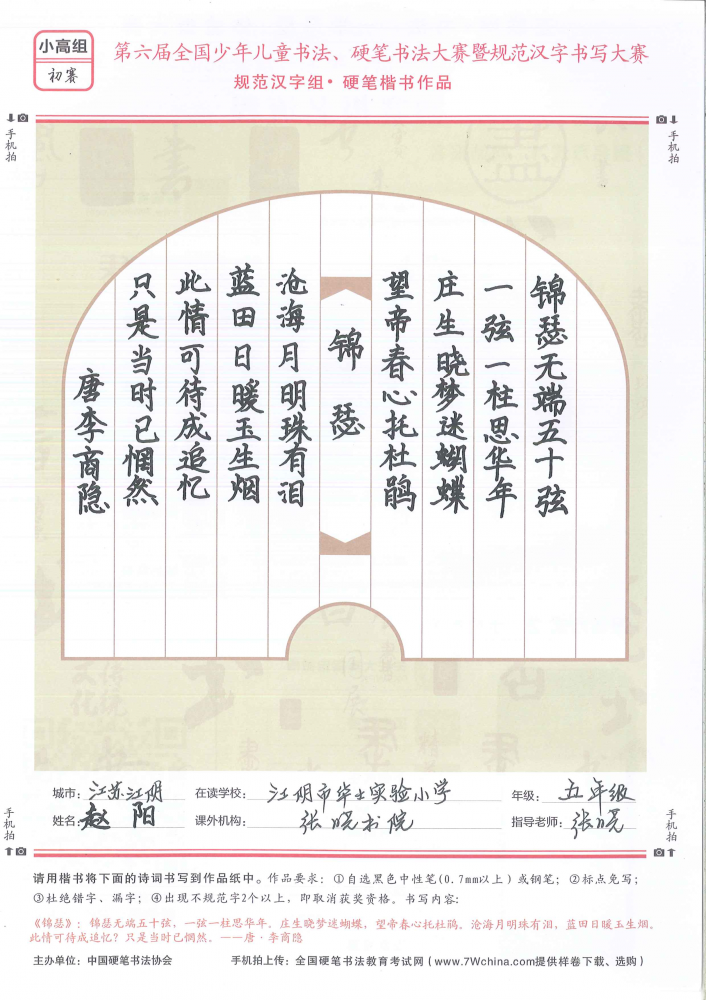 小高组
初赛
第六届全国少年儿童书法、硬笔书法大赛暨规范汉字书写大赛
规范汉字组·硬笔楷书作品
手机拍
手机拍
锦瑟无端五十弦
一弦一柱思华年
庄生晓梦迷蝴蝶
望帝春心托杜鹃
锦瑟
沧海月明珠有泪
蓝田日暖玉生烟
此情可待成追忆
只是当时已惘然
唐李商隐
城市：江苏江阴 在读学校：江阴市华士实验小学 年级：五年级
姓名：赵阳 课外机构：张晓书院 指导老师：张晓
手机拍
手机拍
请用楷书将下面的诗词书写到作品纸中。作品要求：①自选黑色中性笔(0.7mm以上）或钢笔；②标点免写；
③杜绝错字、漏字；④出现不规范字2个以上，即取消获奖资格。书写内容：
《锦瑟》：锦瑟无端五十弦，一弦一柱思华年。庄生晓梦迷蝴蝶，望帝春心托杜鹃。沧海月明珠有泪，蓝田日暖玉生烟。
此情可待成追忆？只是当时已惘然。——唐·李商隐
主办单位：中国硬笔书法协会 手机拍上传：全国硬笔书法教育考试网（www.7Wchina.com提供样卷下载、选购）